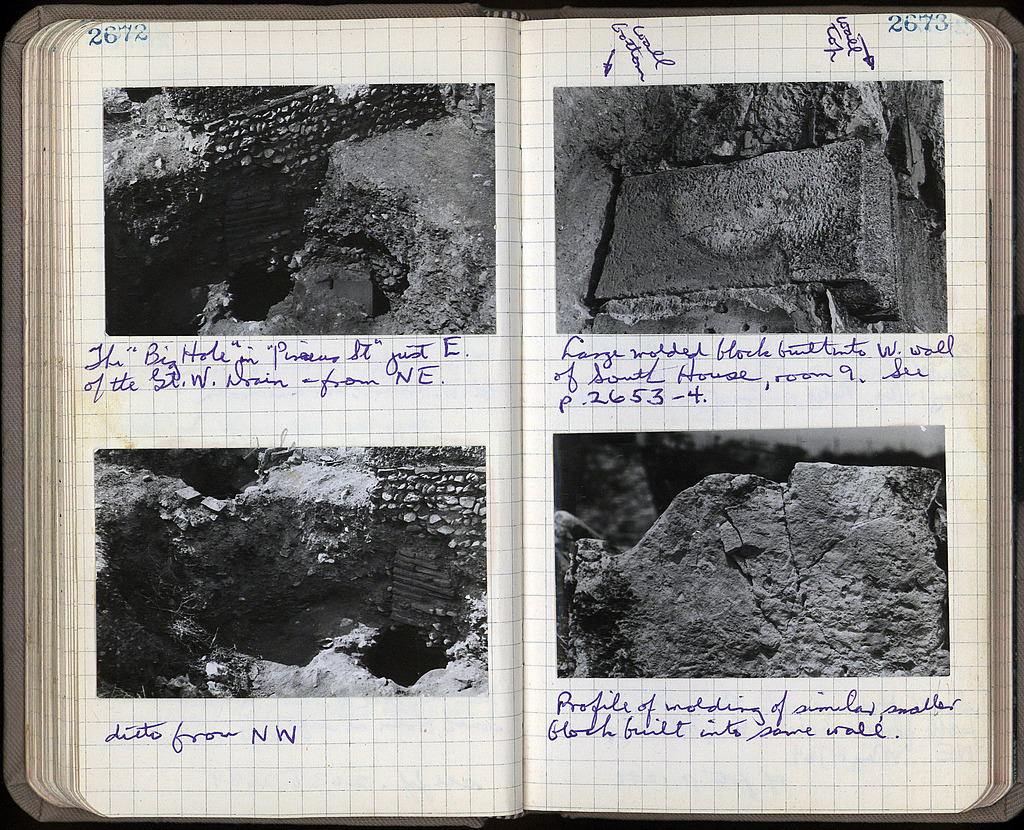 2672
The "Big Hole" in "Piraeus St" just E.
of the Gt. W. Drain - from NE.
ditto from NW
2673
wall
bottom
wall
top
Large molded block built into W. wall
of South House, room 9. See
p. 2653-4.
Profile of molding of similar, smaller
block built into same wall.